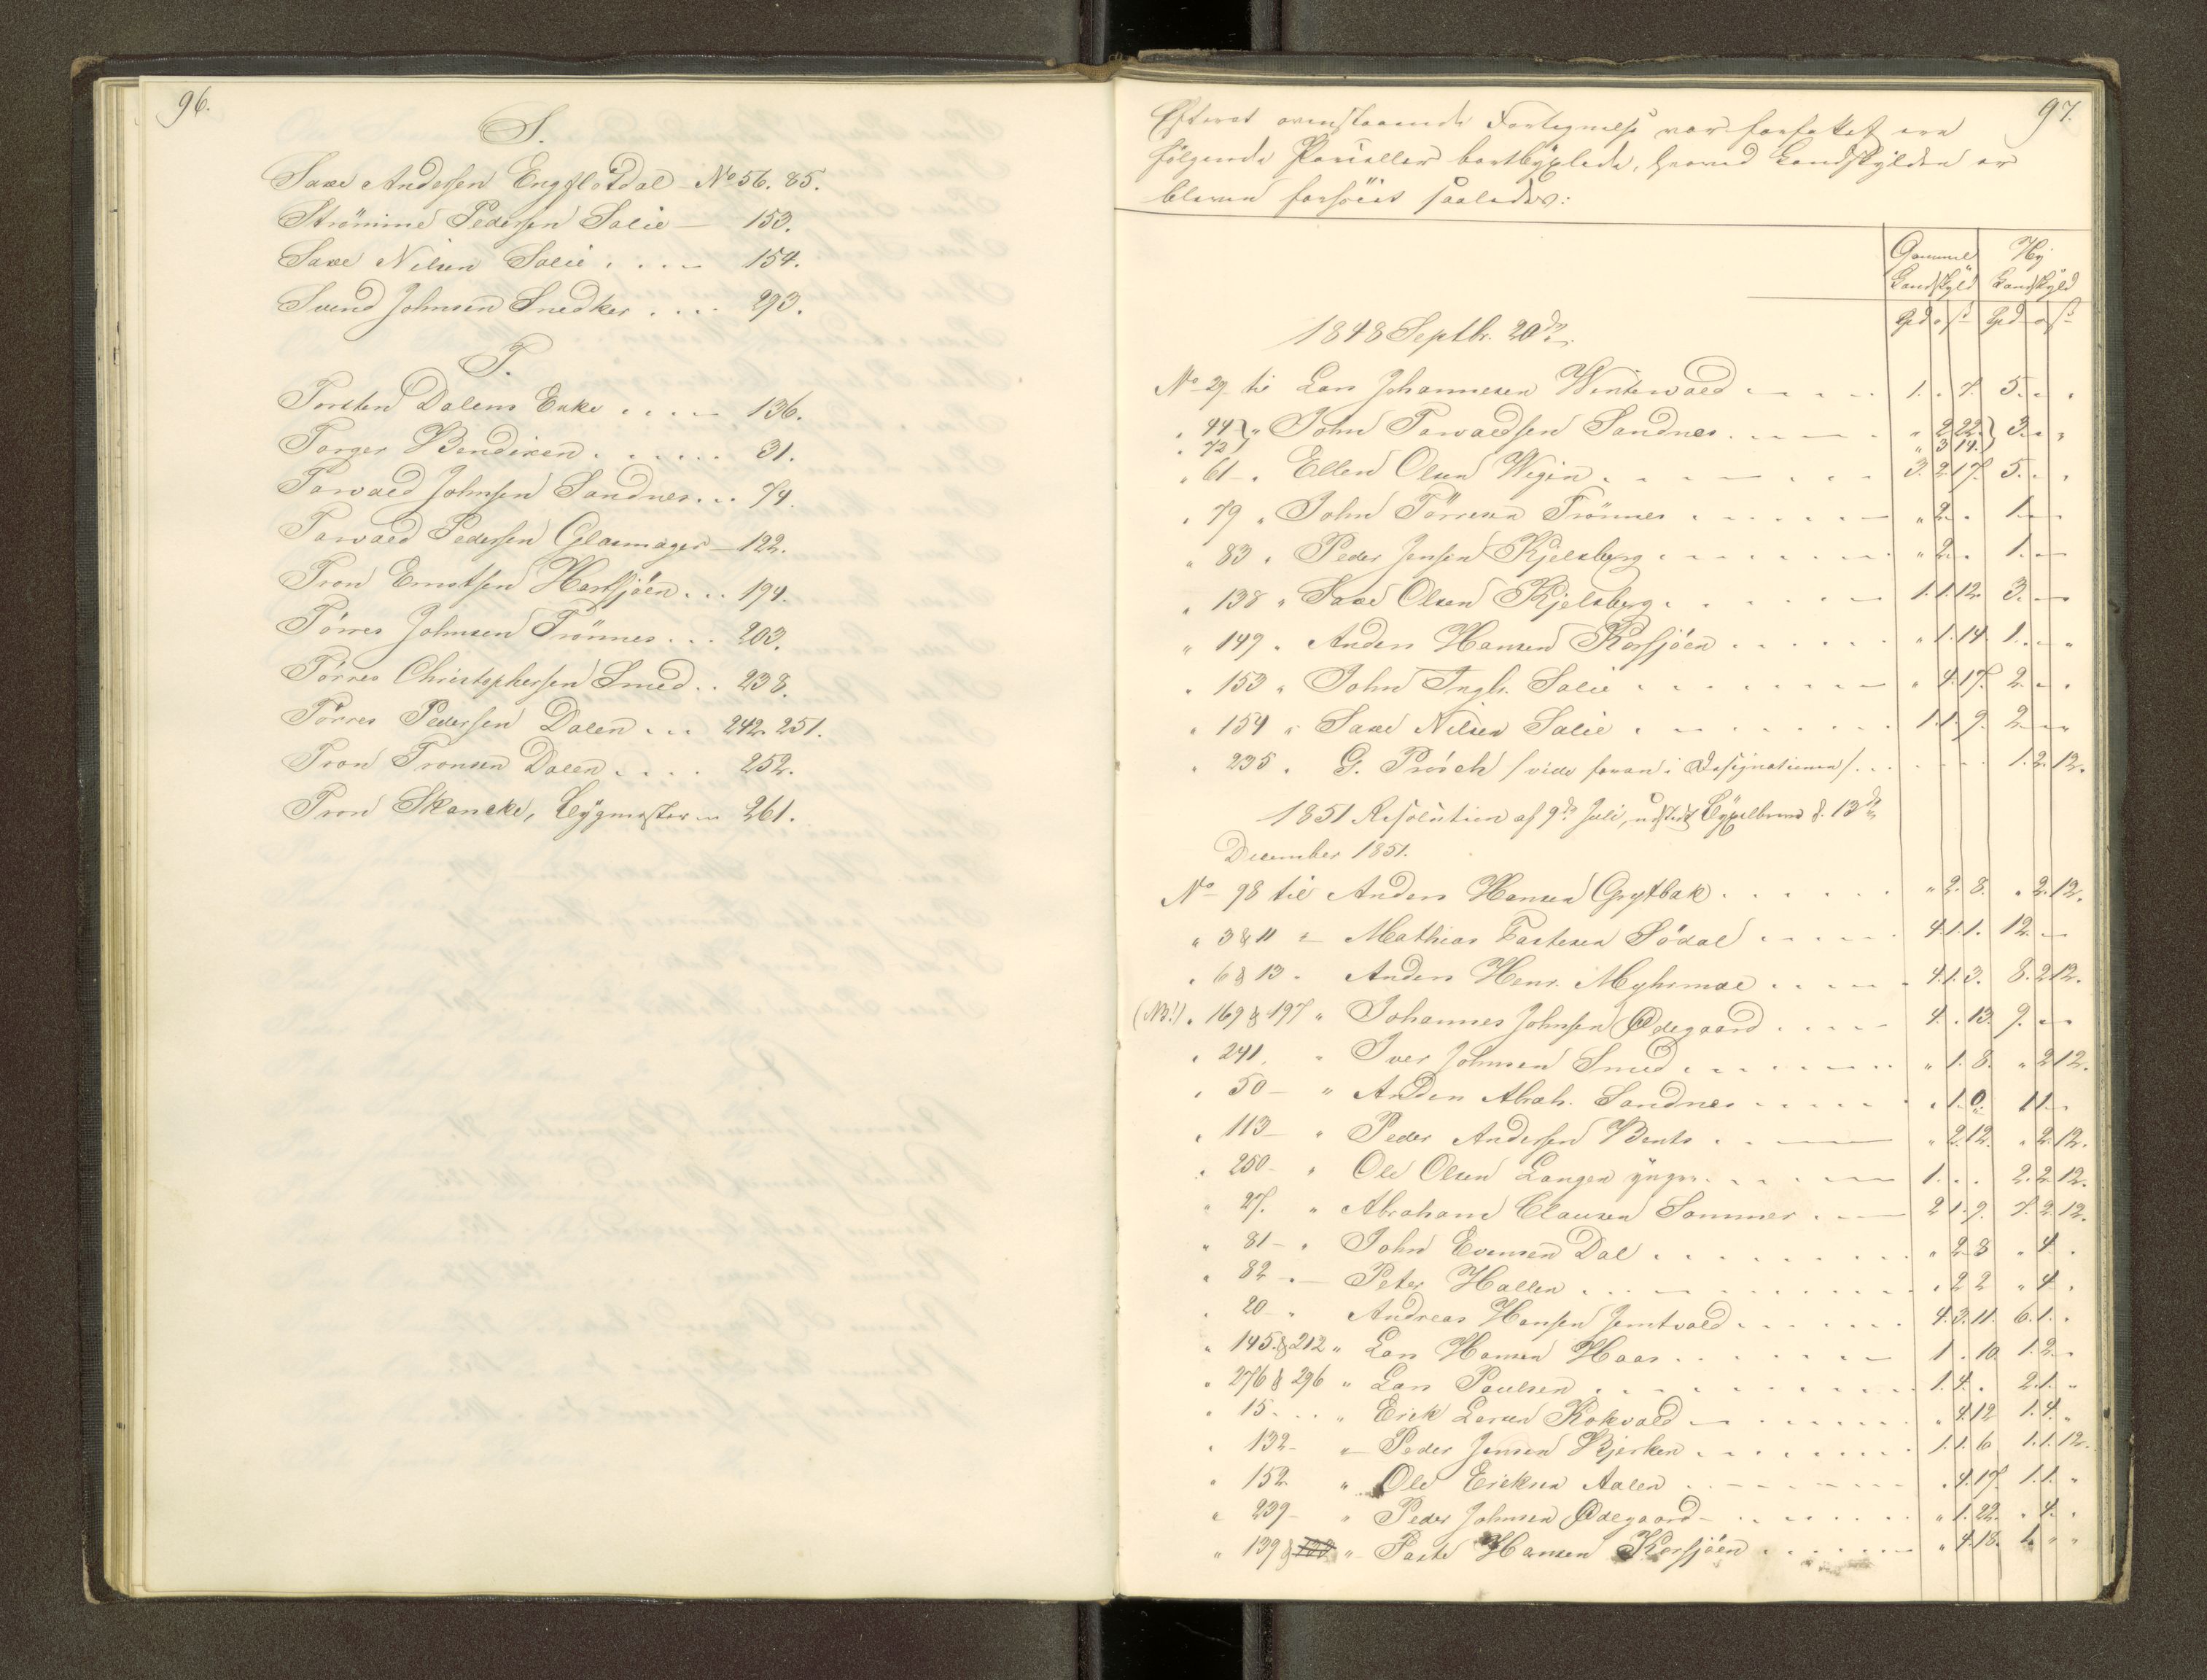 96.
S.
Saxe Andersen Engfløtdal - No 56. 85.
Strömme Pedersen Salie - 153.
Saxe Nilsen Salie . . . - 154.
Svend Johnsen Snedker . . . . 293.
T.
Torsten Dalens Enke . . . - 136.
Torger Bendixen . . . . . . 31.
Torvald Johnsen Sandnes . . . 74.
Torvald Pedersen Glasmager - 122.
Tron Erntsen Harsjöen . . . 194.
Törres Johnsen Trönnes . . . 203.
Törres Christophersen Smed . . 238.
Törres Pedersen Dalen . . . 242. 251.
Tron Tronsen Dalen . . . . 252.
Tron Skancke, Bygmester - 261.
97.
Efterat ovenstaaende Fortegnelse var forfattet ere
følgende Parceller bortbyxlede, hvorved Landskylden er
bleven forhöiet saaledes:
Gammel Landskyld Ny Landskyld
1848 Septbr. 20de
No 29 til Lars Johannesen Wintervold . . . 1. . 7. 5. . .
" 44 " John Torvaldsen Sandnes . . . " 2 22. 3. . "
" 72 " 3 14.
" 61 - " Ellen Olsen Wigen . . . 3. 2 17. 5. . .
" 79 " John Törresen Trönnes . . . " 2. . 1. -
" 83 " Peder Jensen Kjelsberg . . . " 2. . 1. -
" 138 " Saxe Olsen Kjelsberg . . . 1. 1. 12. 3. -
" 149 " Anders Hansen Korsjöen . . . " 1. 14. 1. . "
" 153 " John Ingbr. Salie . . . " 4. 17. 2. . .
" 154 " Saxe Nilsen Salie . . . 1. 1. 9. 2. -
" 235 " G. Prösch / vide foran i Designationen / . . . 1. 2. 12.
1851 Resolution af 9de Juli, udstedt Byxelbrev d. 13de
December 1851.
No 98 til Anders Hansen Grytbak . . . " 2. 8. " 2. 12.
" 3 & 11 - Mathias Fastesen Södal . . . 4. 1. 1. 12. -
" 6 & 13 - Anders Henr. Myhrmoe . . . 4. 1. 3. 8. 2 12.
(NB!) " 169 & 197 " Johannes Johnsen Ødegaard . . . 4. . 13. 9. -
" 241. " Iver Johnsen Smed . . . " 1. 8. " 2 12.
" 50 - " Anders Abrah. Sandnes . . . " 1. 0. 1 1. -
" 113 - " Peder Andersen Bents . . . " 2 12. " 2. 12.
" 250 - " Ole Olsen Langen yngr. . . . 1. . . 2. 2 12.
" 27. " Abraham Clausen Sommer . - 2 1. 9. 7. 2 12.
" 81 - " John Evensen Dal . . . " 2 8 " 4 .
" 82 - . - Peter Hallen . . . " 2 2 " 4 .
" 20 - " Andreas Hansen Jemtvold . . . 4. 3. 11. 6. 1. .
" 145. & 212 " Lars Hansen Haas . . . 1 . 10 1. 2. -
" 276 & 296 " Lars Paulsen . . . 1. 4. . 2. 1. "
" 15 . . . " Erick Larsen Kokvold . . . " 4. 12 1. 4. "
" 132 - " - Peder Jensen Bjerken . . . 1. 1. 6 1. 1. 12.
" 152 " Ole Ericksen Aalen . . . " 4. 17. 1. 1. "
" 239 - " Peder Johnsen Ødegaard - . . . " 1. 22. " 4. .
" 139 & 188 " Faste Hansen Korsjöen . . . " 4. 18. 1. " "